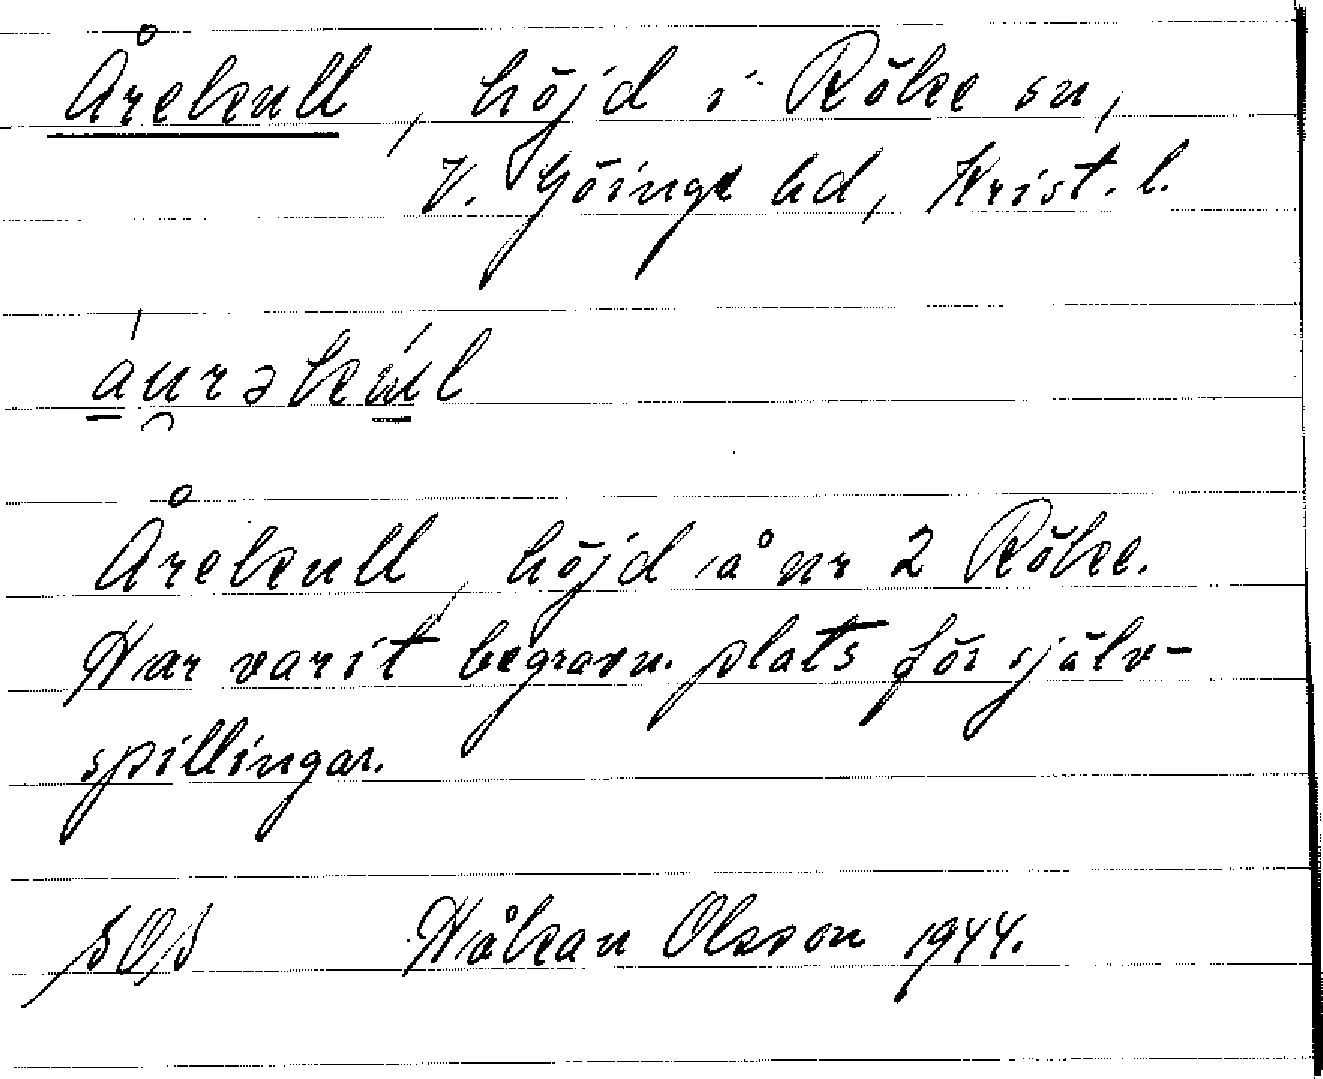 Årekull, höjd i Röke sn,
V. Göinge hd, Krist. l.
áu̯rəkúl
Årekull, höjd å nr 2 Röke.
Har varit begravn. plats för själv-
spillingar.
SOS Håkan Olsson 1944.